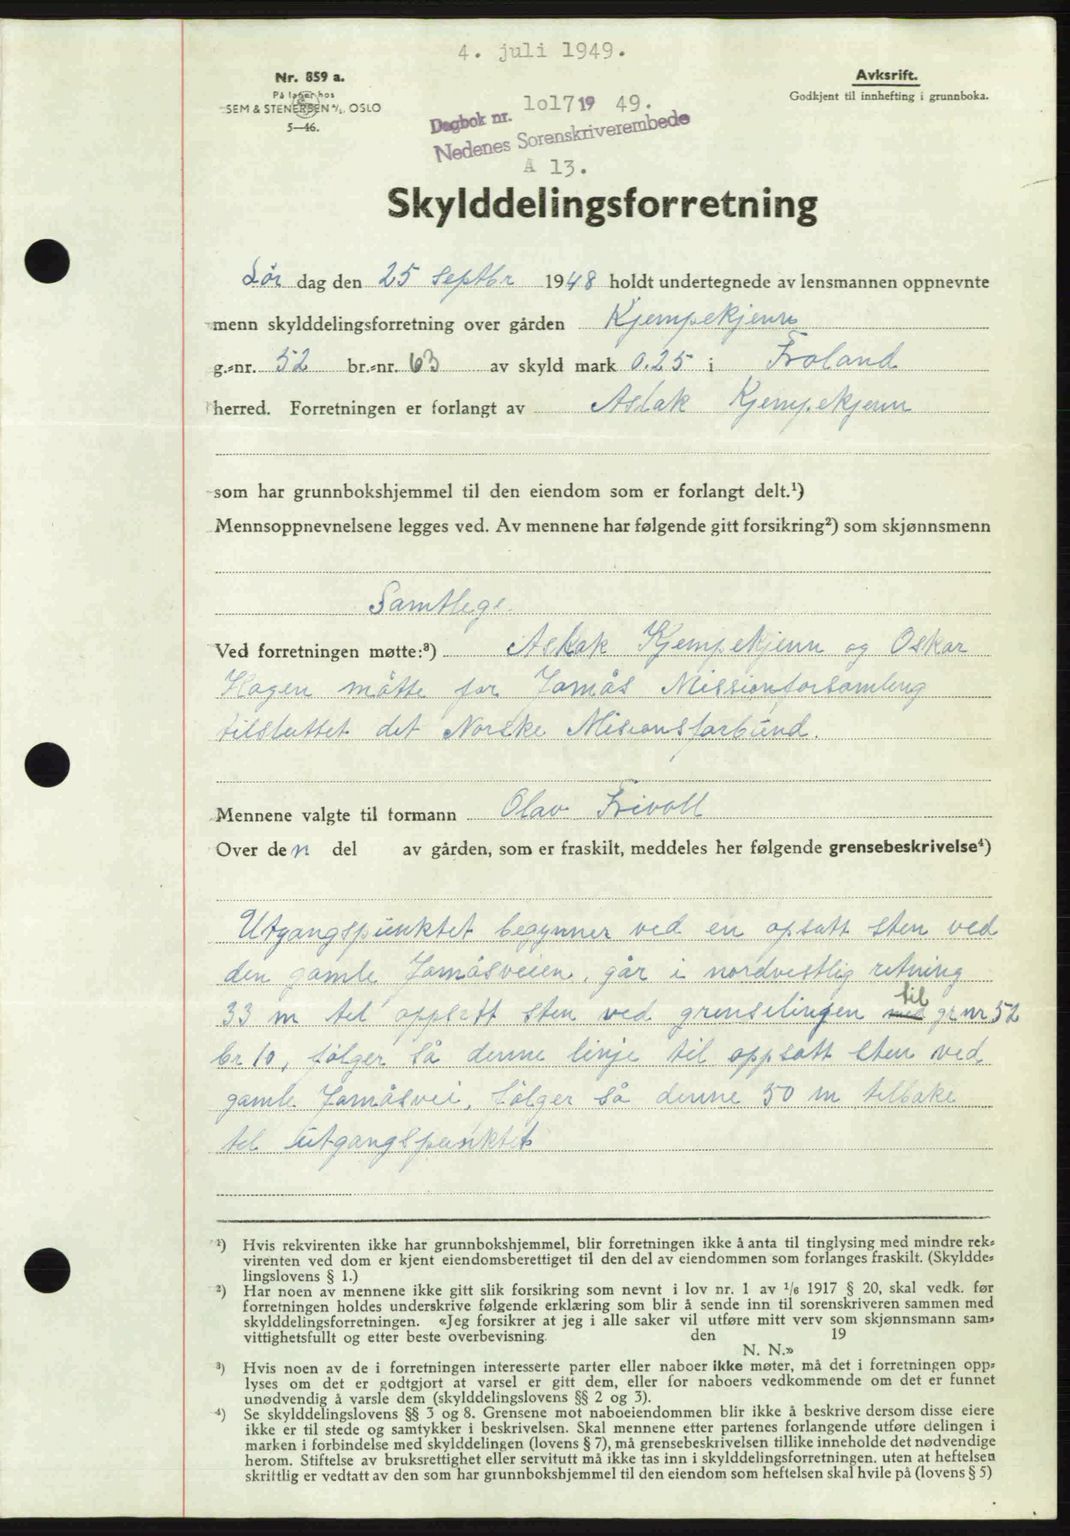 4. juli 1949.
Nr. 859 a.
På lager hos
SEM & STENERSEN A/S, OSLO
5—46.
Avksrift.
Godkjent til innhefting i grunnboka.
Dagbok nr. 1o17 19 49.
Nedenes Sorenskriverembede
A 13.
Skylddelingsforretning
Lør dag den 25 septbr 1948 holdt undertegnede av lensmannen oppnevnte
menn skylddelingsforretning over gården Kjempekjenn
g.=nr. 52 br.=nr. 63 av skyld mark 0.25 i Froland
herred. Forretningen er forlangt av Aslak Kjempekjenn
som har grunnbokshjemmel til den eiendom som er forlangt delt.¹)
Mennsoppnevnelsene legges ved. Av mennene har følgende gitt forsikring²) som skjønnsmenn
Samtlege.
Ved forretningen møtte:³) Aslak Kjempekjenn og Oskar
Hagen måtte for Jomås Missionforsamling
tilsluttet det Norske Misionsforbund.
Mennene valgte til formann Olav Trivoll
Over den del av gården, som er fraskilt, meddeles her følgende grensebeskrivelse⁴)
Utgangspunktet begynner ved en opsatt sten ved
den gamle Jomåsveien, går i nordvestlig retning
33 m til oppsatt sten ved grenselingen med til gr nr 52
br 10, følger så denne linje til oppsatt sten ved
gamle Jomåsvei, følger så denne 50 m tilbake
til utgangspunktet
¹) Hvis rekvirenten ikke har grunnbokshjemmel, blir forretningen ikke å anta til tinglysing med mindre rek=
virenten ved dom er kjent eiendomsberettiget til den del av eiendommen som forlanges fraskilt. (Skyldde=
lingslovens § 1.)
²) Har noen av mennene ikke gitt slik forsikring som nevnt i lov nr. 1 av 1/6 1917 § 20, skal vedk. før
forretningen holdes underskrive følgende erklæring som blir å sende inn til sorenskriveren sammen med
skylddelingsforretningen. «Jeg forsikrer at jeg i alle saker vil utføre mitt verv som skjønnsmann sam=
vittighetsfullt og etter beste overbevisning. den 19
N. N.»
³) Hvis noen av de i forretningen interesserte parter eller naboer ikke møter, må det i forretningen opp=
lyses om det er godtgjort at varsel er gitt dem, eller for naboers vedkommende om det er funnet
unødvendig å varsle dem (skylddelingslovens §§ 2 og 3).
⁴) Se skylddelingslovens §§ 3 og 8. Grensene mot naboeiendommen blir ikke å beskrive dersom disse eiere
ikke er til stede og samtykker i beskrivelsen. Skal mennene etter partenes forlangende utføre delingen i
marken i forbindelse med skylddelingen (lovens § 7), må grensebeskrivelsen tillike inneholde det nødvendige
herom. Stiftelse av bruksrettighet eller servitutt må ikke tas inn i skylddelingsforretningen. uten at heftelsen
skriftlig er vedtatt av den som har grunnbokshjemmel til den eiendom som heftelsen skal hvile på (lovens § 5)